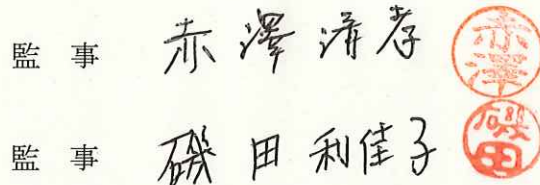 監事 赤澤清孝 赤澤
監事 磯田利佳子 磯田